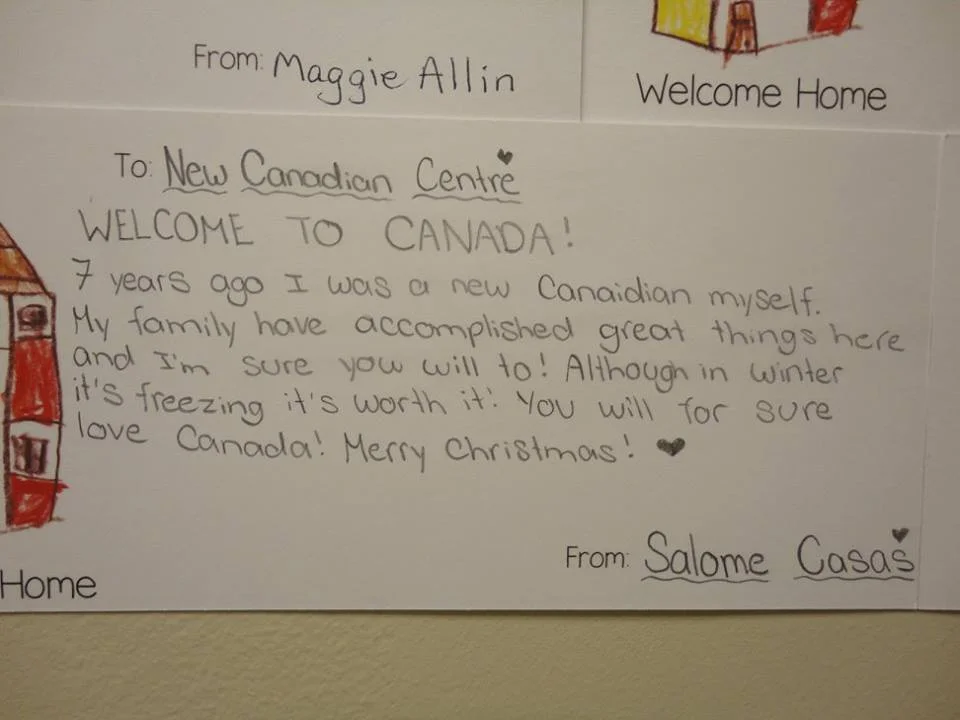 From: Maggie Allin
Welcome Home
To: New Canadian Centre
WELCOME TO CANADA!
7 years ago I was a new Canaidian myself.
My family have accomplished great things here
and I'm sure yow will to! Although in winter
it's freezing it's worth it! You will for sure
love Canada! Merry Christmas! ♥
From: Salome Casas
Home